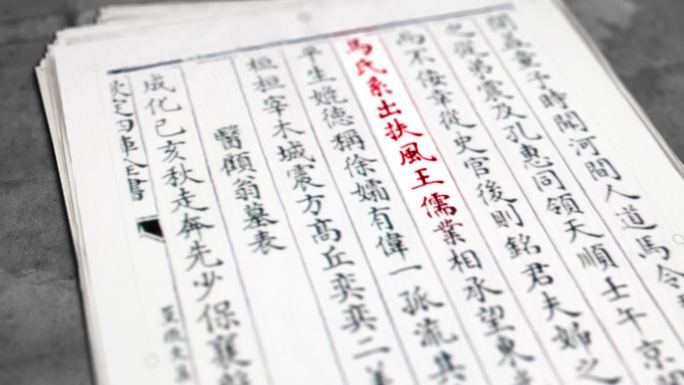 童子時聞河間人道馬令
之從弟震及孔惠同領天順壬午京
而不佞幸從史官後則銘君夫婦之
馬氏系出扶風王儒業相承望東
平生媺德稱徐孺有偉一孤流其
桓桓宰木城震方高丘奕奕二
醫顧翁墓表
成化己亥秋走奔先少保襄
欽定四庫全書
篁墩文集